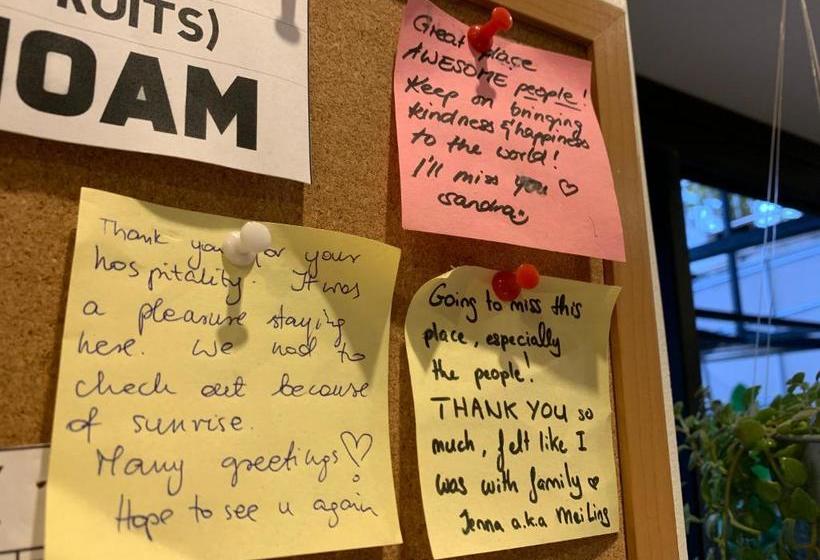 RUITS)
OAM
Great place
AWESOME people!
Keep on bringing
kindness & happiness
to the world!
I'll miss you ♡
sandra
Thank you for your
hospitality. It was
a pleasure staying
here. We had to
check out because
of sunrise.
Many greetings ♡
Hope to see u again
Going to miss this
place, especially
the people!
THANK YOU so
much, felt like I
was with family ♡
Jenna a.k.a Mei Ling